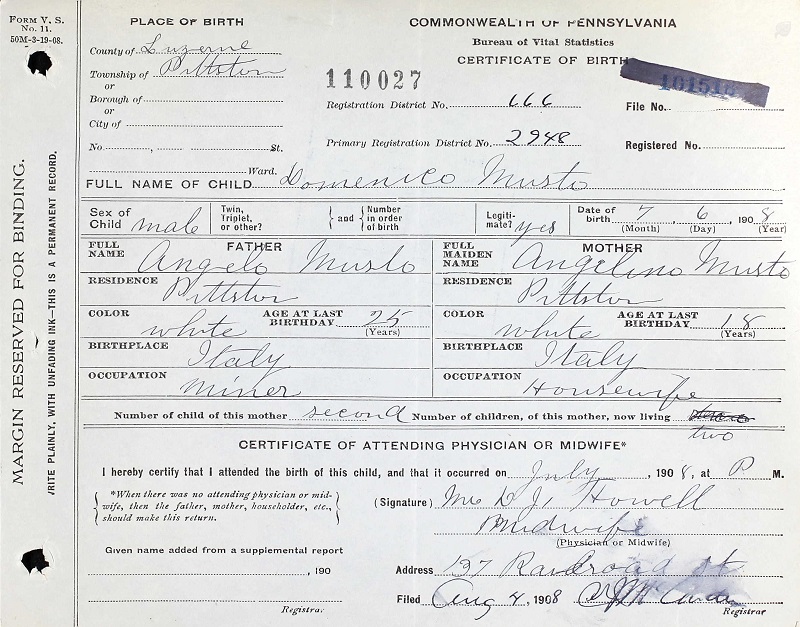 FORM V. S. No. 11.
50M-3-19-08.
MARGIN RESERVED FOR BINDING.
RITE PLAINLY, WITH UNFADING INK—THIS IS A PERMANENT RECORD.
PLACE OF BIRTH
COMMONWEALTH OF PENNSYLVANIA
County of Luzerne
Bureau of Vital Statistics
Township of Pittston
CERTIFICATE OF BIRTH
or
110027
101518
Borough of
Registration District No. 666
File No.
or
City of
Primary Registration District No. 2948
Registered No.
No. , St.
Ward.
FULL NAME OF CHILD Domenico Musto
Sex of Child male
Twin, Triplet, or other?
{ and { Number in order of birth
Legitimate? yes
Date of birth 7 6 , 1908
(Month) (Day) (Year)
FATHER
FULL NAME Angelo Musto
MOTHER
FULL MAIDEN NAME Angelina Musto
RESIDENCE Pittston
RESIDENCE Pittston
COLOR white AGE AT LAST BIRTHDAY 25 (Years)
COLOR white AGE AT LAST BIRTHDAY 18 (Years)
BIRTHPLACE Italy
BIRTHPLACE Italy
OCCUPATION Miner
OCCUPATION Housewife
Number of child of this mother second Number of children, of this mother, now living
two
CERTIFICATE OF ATTENDING PHYSICIAN OR MIDWIFE*
I hereby certify that I attended the birth of this child, and that it occurred on July , 1908, at P M.
{ *When there was no attending physician or midwife, then the father, mother, householder, etc., should make this return. }
(Signature) Mrs D J Howell
Midwife
(Physician or Midwife)
Given name added from a supplemental report
, 190
Address 137 Railroad St
Filed Aug 4, 1908
Registrar.
Registrar